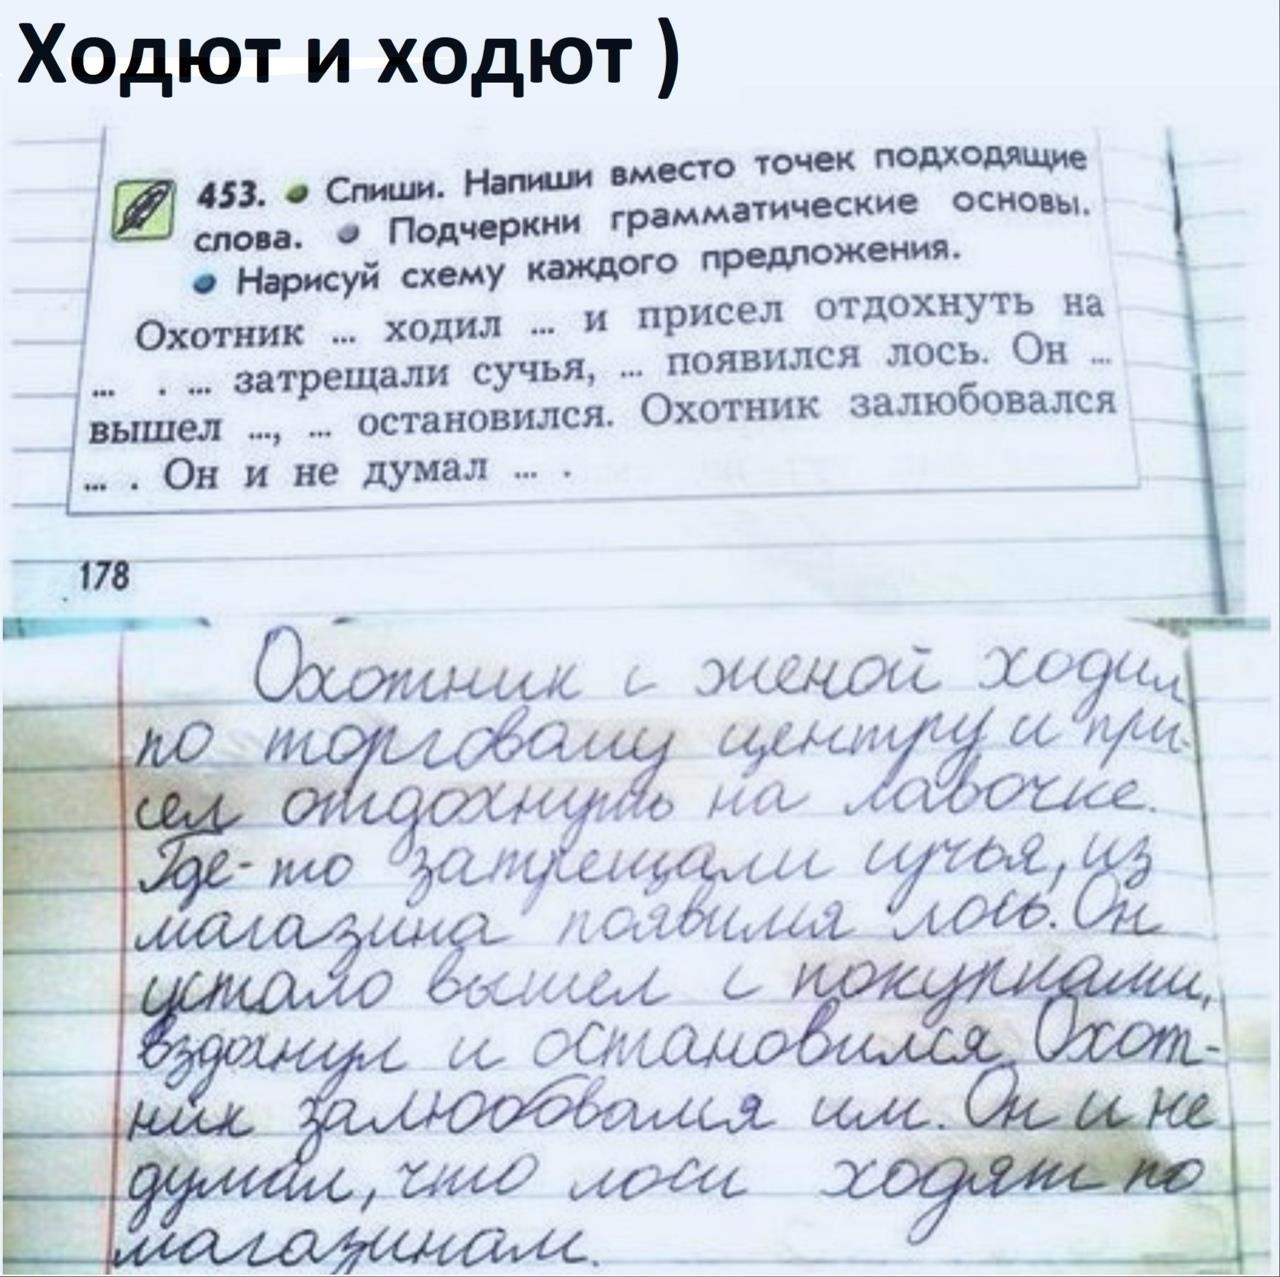 Ходют и ходют )
453. Спиши. Напиши вместо точек подходящие
слова. Подчеркни грамматические основы.
Нарисуй схему каждого предложения.
Охотник ... ходил ... и присел отдохнуть на
... . ... затрещали сучья, ... появился лось. Он ...
вышел ..., ... остановился. Охотник залюбовался
... . Он и не думал ... .
178
Охотник с женой ходил
по торговому центру и при-
сел отдохнуть на лавочке.
Где-то затрещали сучья, из
магазина появился лось. Он
устало вышел с покупками,
вздохнул и остановился. Охот-
ник залюбовался им. Он и не
думал, что лоси ходят по
магазинам.